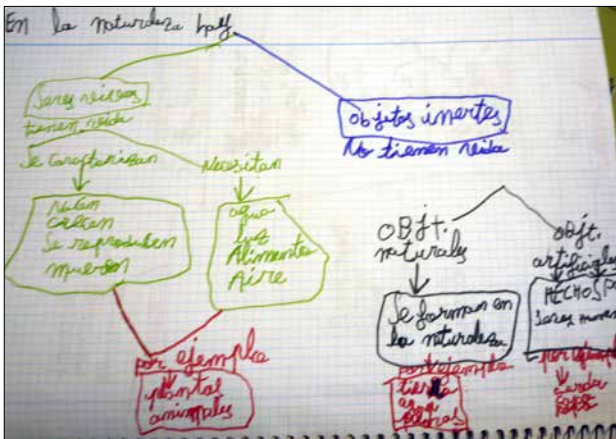 En la naturaleza hay
Seres vivos
tienen vida
Se caracterizan
Nacen
crecen
Se reproducen
mueren
Necesitan
agua
luz
Alimentos
Aire
por ejemplo
plantas
animales
objetos inertes
No tienen vida
OBjt.
naturales
Se forman en
la naturaleza
por ejemplo
tierra
agua
OBjt.
artificiales
HECHOS
Seres
por ejemplo